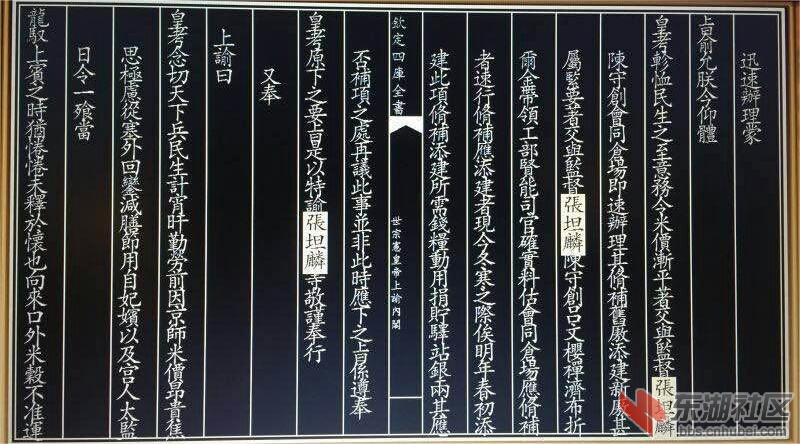 迅速辦理蒙
旨俞允朕今仰體
皇考軫恤民生之至意務令米價漸平著交與監督張坦麟
陳守創會同倉場即速辦理其脩補舊廒添建新廒甚
屬緊要著交與監督張坦麟陳守創呂文櫻禪濟布折
爾金帶領工部賢能司官確實料估會同倉場應脩補
者速行脩補應添建者現今冬寒之際俟明年春初添
建此項脩補添建所需錢糧動用捐貯驛站銀兩其應
欽定四庫全書
世宗憲皇帝上諭內閣
否補項之處再議此事並非此時應下之旨係遵奉
皇考原下之要旨是以特諭張坦麟等敬謹奉行
又奉
上諭曰
皇考念切天下兵民生計宵旰勤勞前因京師米價昂貴焦
思極慮從塞外回鑾減膳節用自妃嬪以及宮人太監
日令一飱當
龍馭上賓之時猶惓惓未釋於懷也向來口外米穀不准運
东湖社区
bbs.cnhubei.com